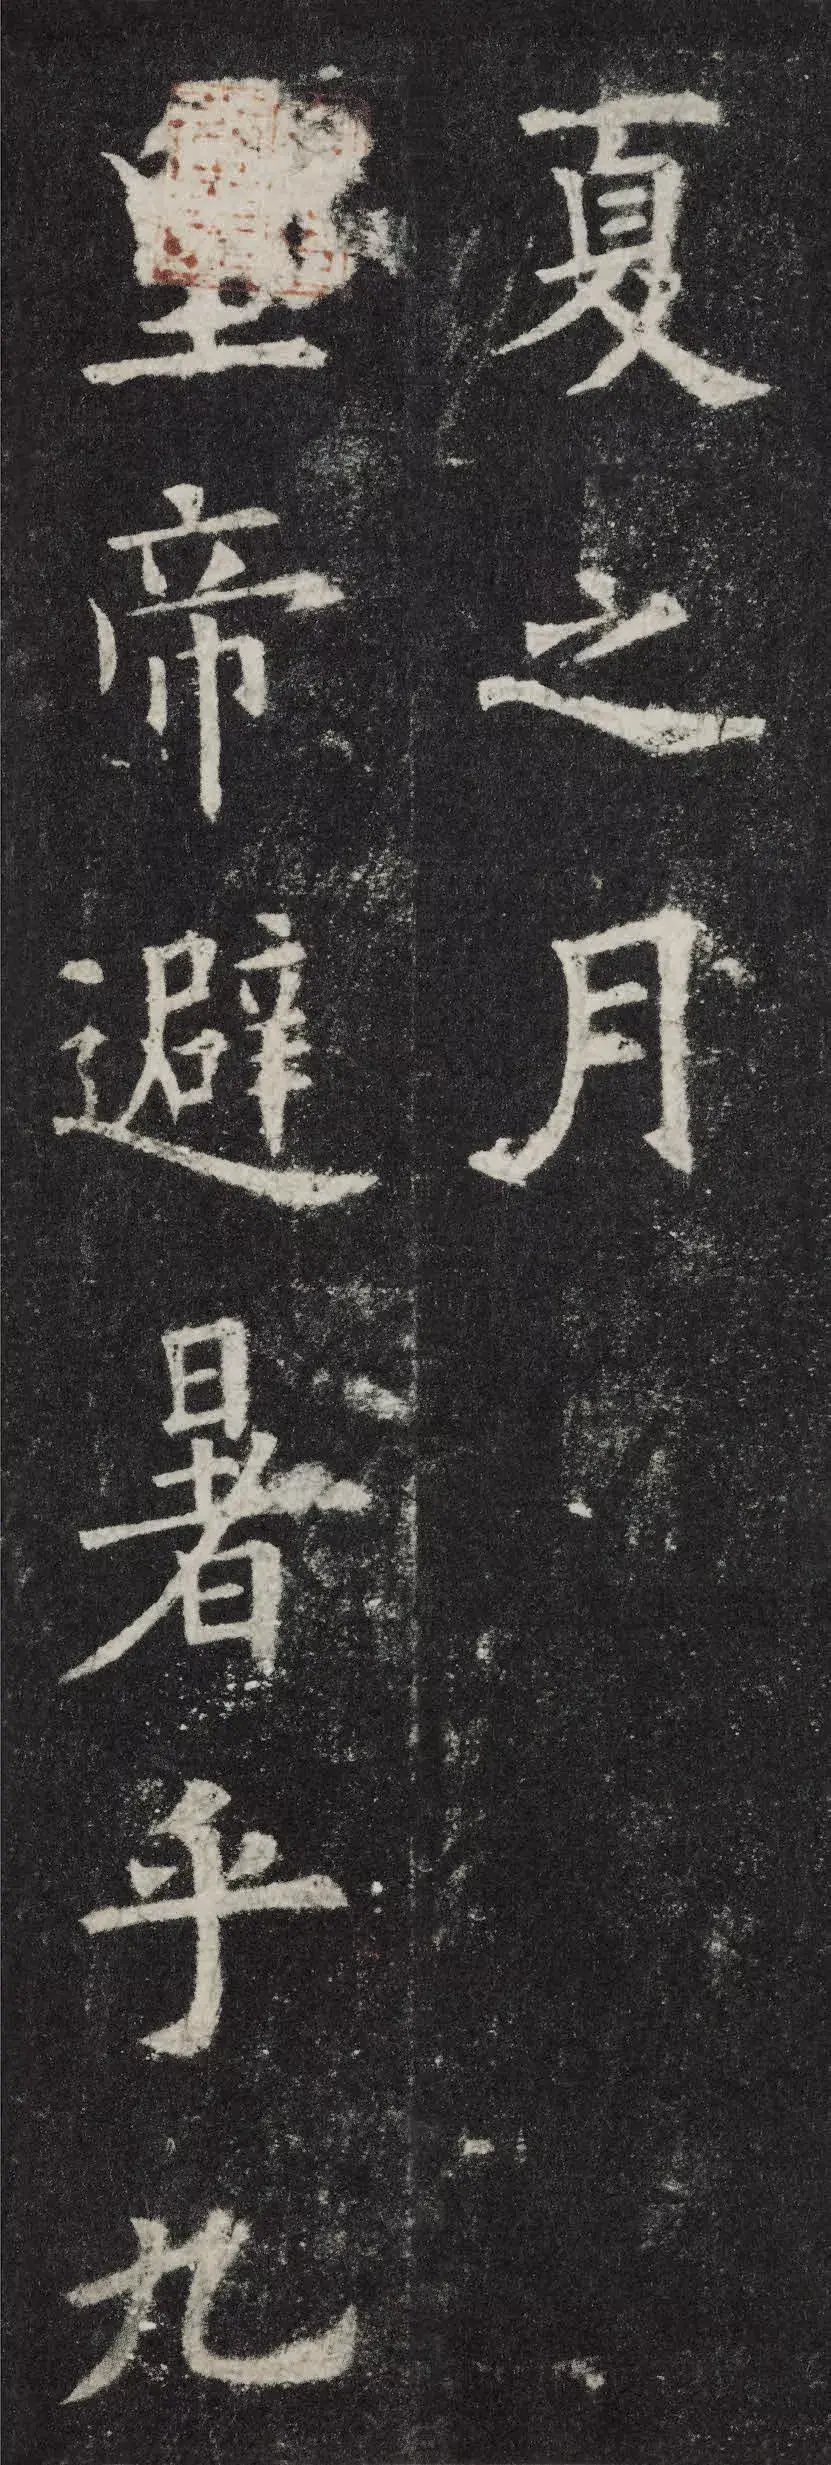 夏之月
皇帝避暑乎九